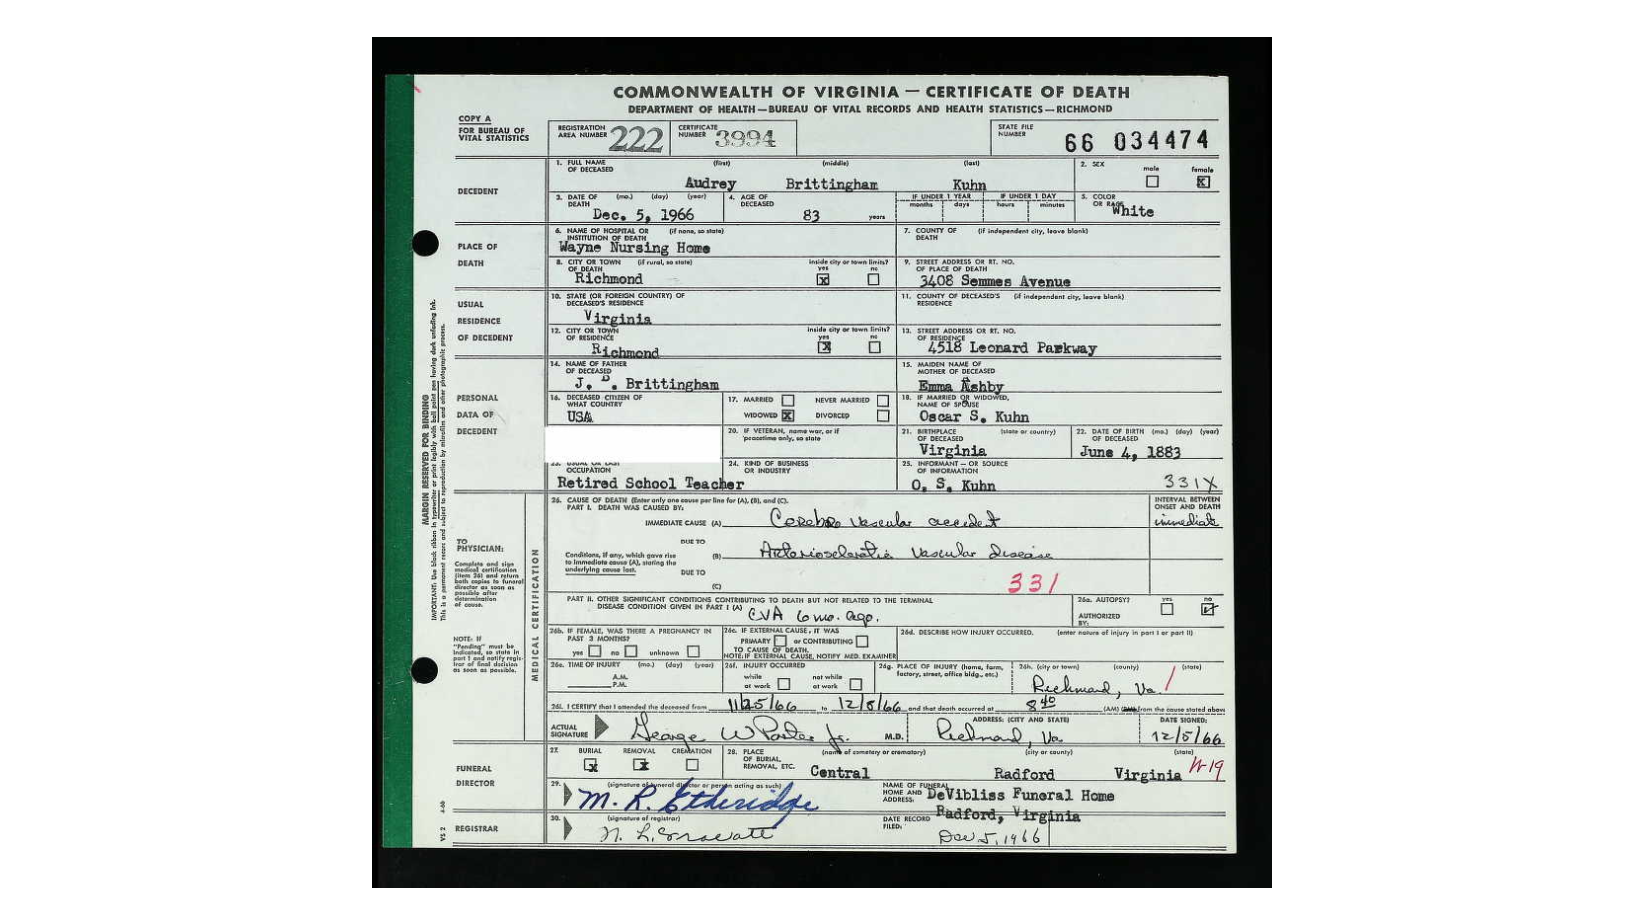 COMMONWEALTH OF VIRGINIA — CERTIFICATE OF DEATH
DEPARTMENT OF HEALTH — BUREAU OF VITAL RECORDS AND HEALTH STATISTICS — RICHMOND
COPY A
FOR BUREAU OF
VITAL STATISTICS
REGISTRATION
AREA NUMBER 222
CERTIFICATE
NUMBER 3994
STATE FILE
NUMBER 66 034474
DECEDENT
1. FULL NAME OF DECEASED (first) (middle) (last)
Audrey Brittingham Kuhn
2. SEX male female X
3. DATE OF DEATH (mo.) (day) (year)
Dec. 5, 1966
4. AGE OF DECEASED
83 years
IF UNDER 1 YEAR months days
IF UNDER 1 DAY hours minutes
5. COLOR OR RACE
White
PLACE OF
DEATH
6. NAME OF HOSPITAL OR INSTITUTION OF DEATH (if none, so state)
Wayne Nursing Home
7. COUNTY OF DEATH (if independent city, leave blank)
8. CITY OR TOWN OF DEATH (if rural, so state)
Richmond
inside city or town limits? yes X no
9. STREET ADDRESS OR RT. NO. OF PLACE OF DEATH
3408 Semmes Avenue
USUAL
RESIDENCE
OF DECEDENT
10. STATE (OR FOREIGN COUNTRY) OF DECEASED'S RESIDENCE
Virginia
11. COUNTY OF DECEASED'S RESIDENCE (if independent city, leave blank)
12. CITY OR TOWN OF RESIDENCE
Richmond
inside city or town limits? yes X no
13. STREET ADDRESS OR RT. NO. OF RESIDENCE
4518 Leonard Parkway
PERSONAL
DATA OF
DECEDENT
14. NAME OF FATHER OF DECEASED
J. D. Brittingham
15. MAIDEN NAME OF MOTHER OF DECEASED
Emma Ashby
16. DECEASED CITIZEN OF WHAT COUNTRY
USA
17. MARRIED NEVER MARRIED
WIDOWED X DIVORCED
18. IF MARRIED OR WIDOWED, NAME OF SPOUSE
Oscar S. Kuhn
20. IF VETERAN, name war, or if peacetime only, so state
21. BIRTHPLACE OF DECEASED (state or country)
Virginia
22. DATE OF BIRTH OF DECEASED (mo.) (day) (year)
June 4, 1883
23. USUAL OR LAST OCCUPATION
Retired School Teacher
24. KIND OF BUSINESS OR INDUSTRY
25. INFORMANT — OR SOURCE OF INFORMATION
O. S. Kuhn
331X
MARGIN RESERVED FOR BINDING
IMPORTANT: Use black ribbon in typewriter or print legibly with ball point pen having dark unfading ink.
This is a permanent record and subject to reproduction by microfilm and other photographic process.
TO
PHYSICIAN:
Complete and sign
medical certification
(item 26) and return
both copies to funeral
director as soon as
possible after
determination
of cause.
NOTE: If
"Pending" must be
indicated, so state in
part I and notify regis-
trar of final decision
as soon as possible.
MEDICAL CERTIFICATION
26. CAUSE OF DEATH (Enter only one cause per line for (A), (B), and (C).
PART I. DEATH WAS CAUSED BY:
INTERVAL BETWEEN ONSET AND DEATH
IMMEDIATE CAUSE (A) Cerebro vascular accident immediate
DUE TO
Conditions, if any, which gave rise to immediate cause (A), stating the underlying cause last.
(B) Arteriosclerotic Vascular disease
DUE TO
(C)
331
PART II. OTHER SIGNIFICANT CONDITIONS CONTRIBUTING TO DEATH BUT NOT RELATED TO THE TERMINAL
DISEASE CONDITION GIVEN IN PART I (A)
CVA 6 mo. ago.
26a. AUTOPSY? yes no
AUTHORIZED BY:
26b. IF FEMALE, WAS THERE A PREGNANCY IN PAST 3 MONTHS?
yes no unknown
26c. IF EXTERNAL CAUSE, IT WAS
PRIMARY or CONTRIBUTING
TO CAUSE OF DEATH.
NOTE: IF EXTERNAL CAUSE, NOTIFY MED. EXAMINER
26d. DESCRIBE HOW INJURY OCCURRED. (enter nature of injury in part I or part II)
26e. TIME OF INJURY (mo.) (day) (year)
A.M.
P.M.
26f. INJURY OCCURRED
while at work not while at work
26g. PLACE OF INJURY (home, farm, factory, street, office bldg., etc.)
26h. (city or town) (county) (state)
Richmond, Va. 1
26i. I CERTIFY that I attended the deceased from 11/25/66 to 12/5/66 and that death occurred at 8 40 (AM) from the cause stated above
ACTUAL
SIGNATURE George W Porter Jr. M.D.
ADDRESS: (CITY AND STATE)
Richmond, Va
DATE SIGNED:
12/5/66
FUNERAL
DIRECTOR
27. BURIAL X REMOVAL X CREMATION
28. PLACE OF BURIAL, REMOVAL, ETC. (name of cemetery or crematory) (city or county) (state)
Central Radford Virginia
29. (signature of funeral director or person acting as such)
M. R. Etheridge
NAME OF FUNERAL HOME AND ADDRESS:
DeVilbiss Funeral Home
Radford, Virginia
REGISTRAR
30. (signature of registrar)
DATE RECORD FILED:
Dec 5, 1966
VS 2